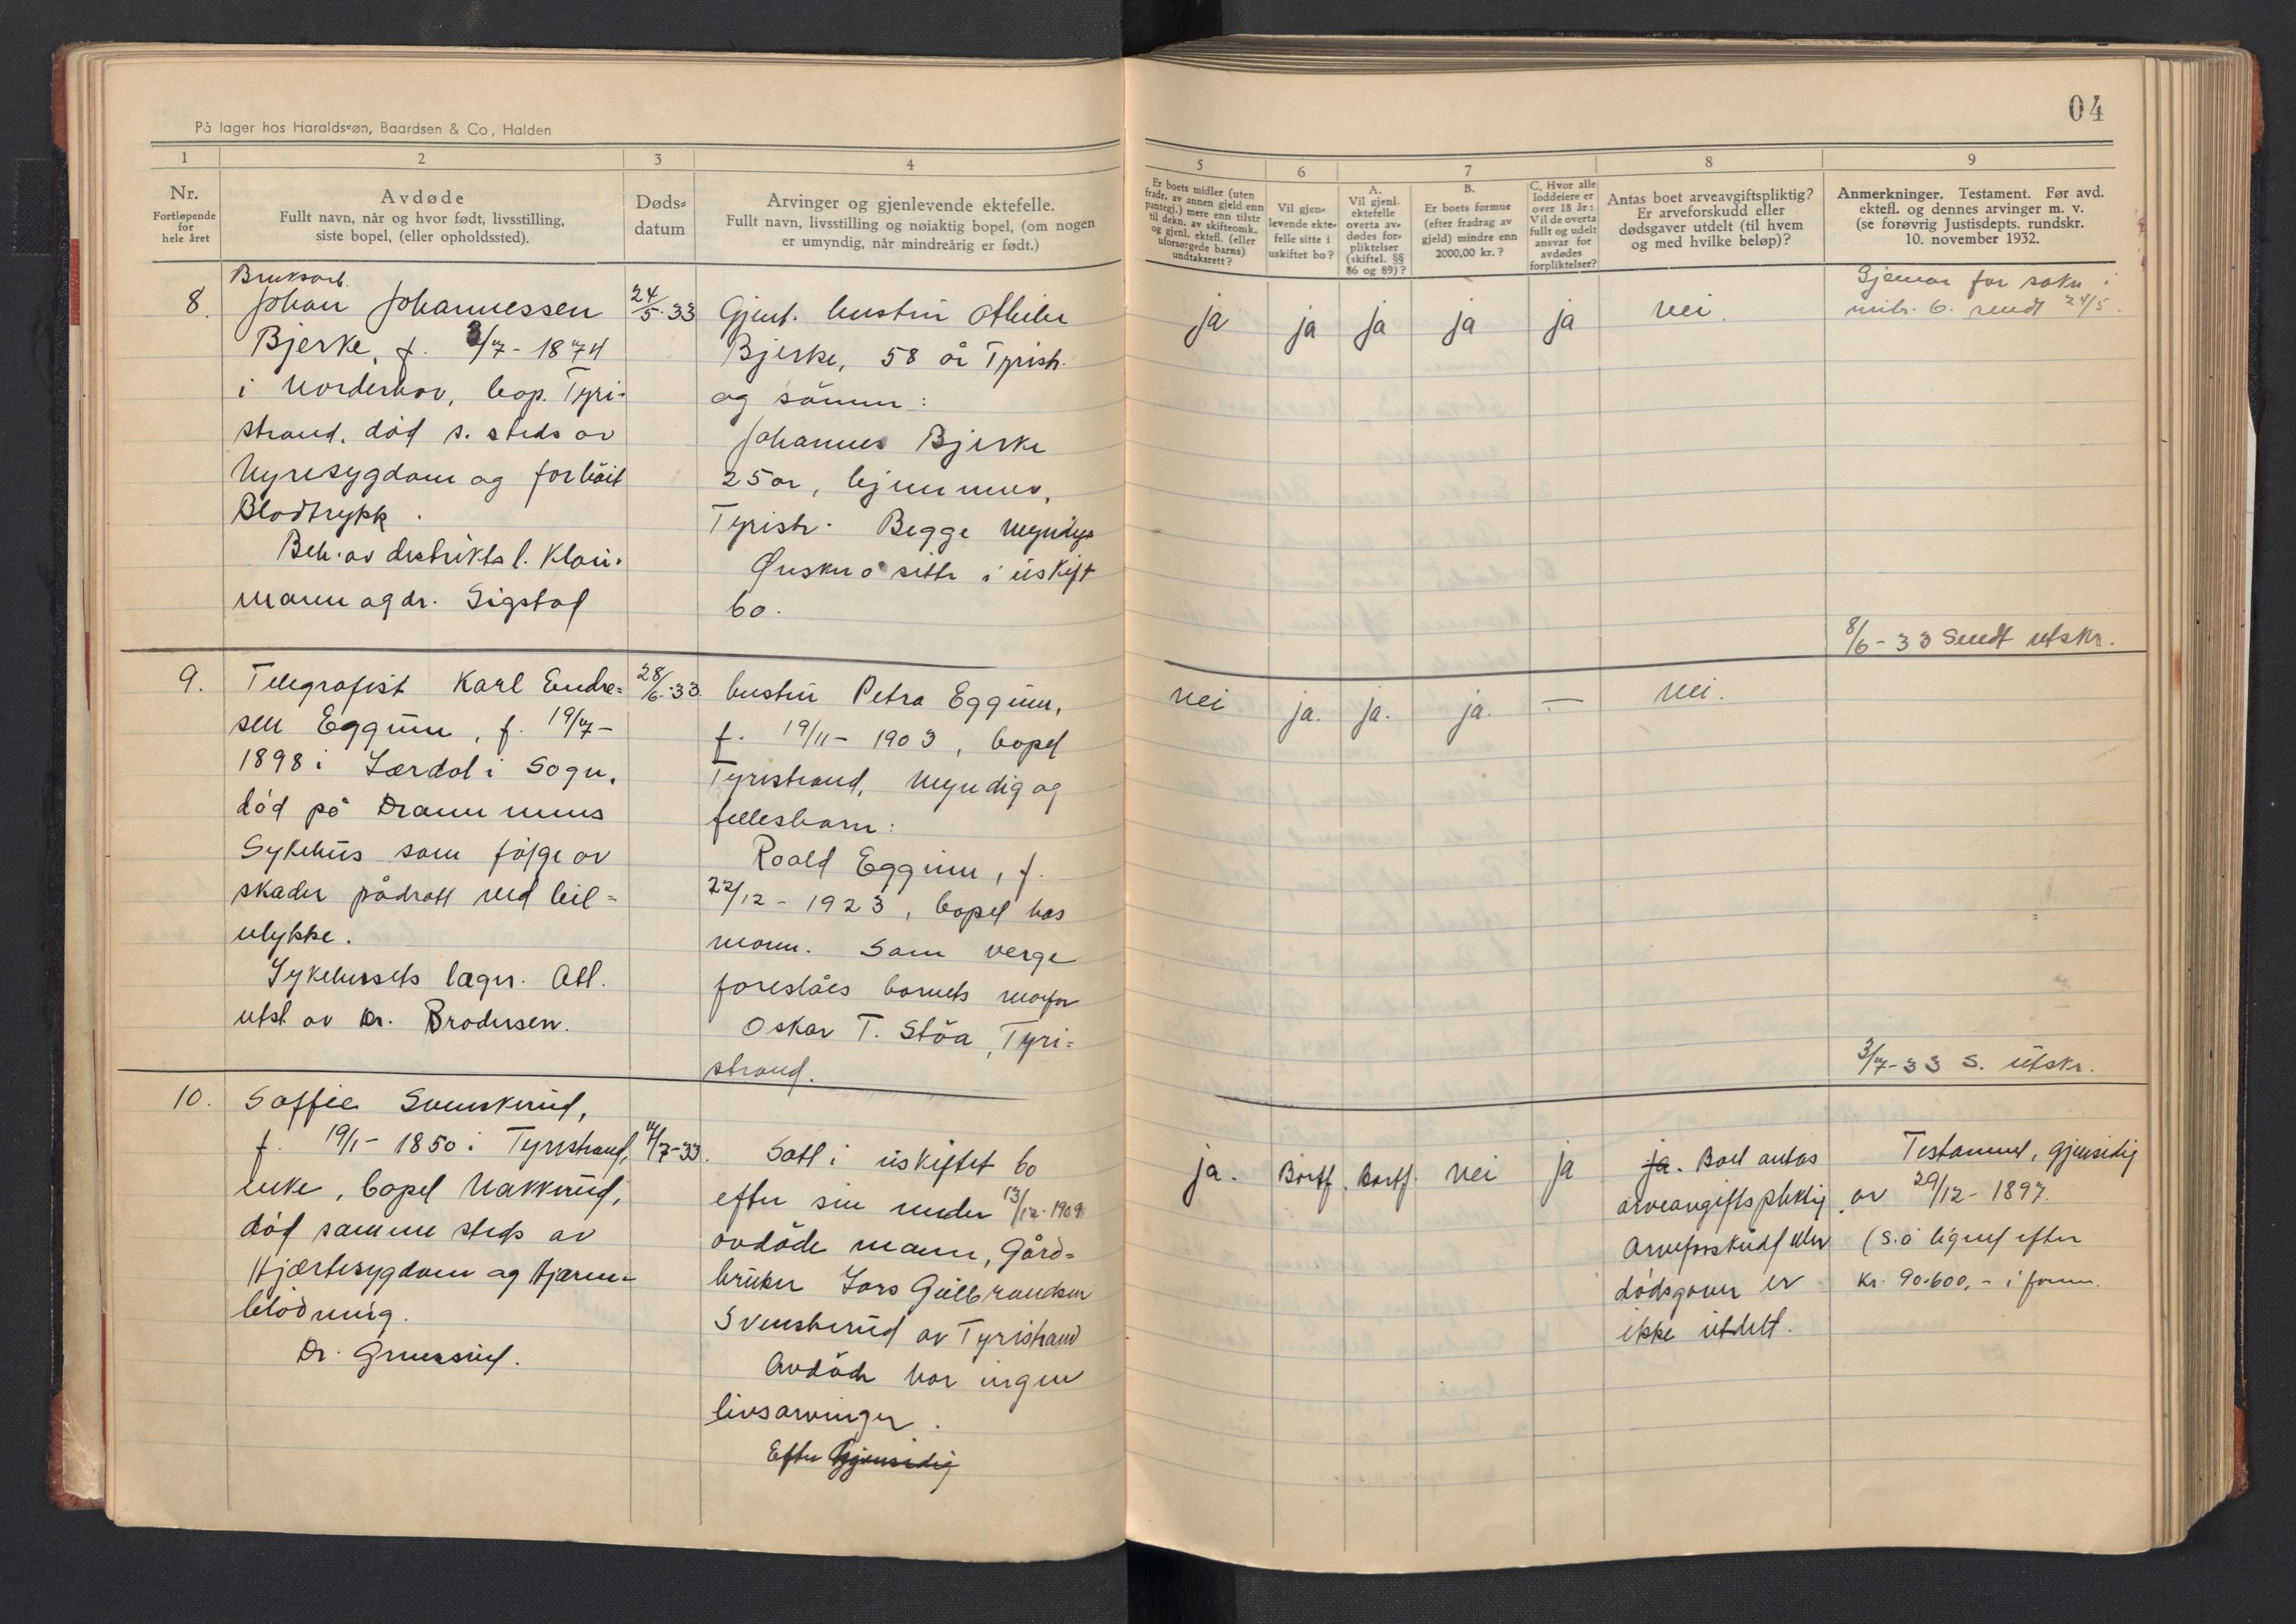 På lager hos Haraldssøn, Baardsen & Co, Halden
04
1 2 3 4 5 6 7 8 9
Nr.
Fortløpende
for
hele året
Avdøde
Fullt navn, når og hvor født, livsstilling,
siste bopel, (eller opholdssted).
Døds-
datum
Arvinger og gjenlevende ektefelle.
Fullt navn, livsstilling og nøiaktig bopel, (om nogen
er umyndig, når mindreårig er født.)
Er boets midler (uten
fradr. av annen gjeld enn
pantegj.) mere enn tilstr
til dekn. av skifteomk.
og gjenl. ektef. (eller
uforsørgede barns)
undtaksrett?
Vil gjen-
levende ekte-
felle sitte i
uskiftet bo?
A.
Vil gjenl.
ektefelle
overta av-
dødes for-
pliktelser
(skiftel. §§
86 og 89)?
B.
Er boets formue
(efter fradrag av
gjeld) mindre enn
2000,00 kr.?
C. Hvor alle
loddeiere er
over 18 år:
Vil de overta
fullt og udelt
ansvar for
avdødes
forpliktelser?
Antas boet arveavgiftspliktig?
Er arveforskudd eller
dødsgaver utdelt (til hvem
og med hvilke beløp)?
Anmerkninger. Testament. Før avd.
ektefl. og dennes arvinger m. v.
(se forøvrig Justisdepts. rundskr.
10. november 1932.
8.
Bruksarb.
Johan Johannessen
Bjerke, f. 3/7-1874
i Norderhov, bop. Tyri-
strand, død s. steds av
Nyresygdom og forhöit
Blodtrykk.
Beh. av distriktsl. Klou-
mann og dr. Sigstad
24/5-33
Gjenl. hustru
Bjerke, 58 år Tyristr.
og sönnen:
Johannes Bjerke
25 år, hjemmev,
Tyristr. Begge myndige
Ønsker å sitte i uskift
bo.
ja ja ja ja ja nei.
for
b. sendt 24/5.
8/6-33 Sendt utskr.
9.
Telegrafist Karl Endre=
sen Eggum, f. 19/7-
1898 i Lærdal i Sogn,
död på Drammens
Sykehus som følge av
skader pådratt ved bil=
ulykke.
Sykehusets læger. Att.
utst av Dr. Brodersen.
28/6-33.
hustru Petra Eggum,
f. 19/11-1903, bopel
Tyristrand, myndig og
fellesbarn:
Roald Eggum, f.
22/12-1923, bopel hos
moren. Som verge
foreslåes barnets morfar
Oskar T. Stöa, Tyri=
strand.
nei ja. ja. ja. — nei.
3/7-33 S. utskr.
10.
Soffie Svenskerud,
f. 19/1-1850 i Tyristrand,
enke, bopel Nakkerud,
död samme steds av
Hjærtesygdom og Hjærne=
blödning.
Dr.
/7-33.
Satt i uskiftet bo
efter sin under 13/12-1909
avdöde mann, Gård=
bruker Lars Gulbrandsen
Svenskerud av Tyristrand
Avdöde har ingen
livsarvinger.
Efter Gjensidig
ja. Bortf. Bortf. nei ja
ja. Boet antas
arveavgiftspliktig.
Arveforskudd eller
dödsgaver er
ikke utdelt.
Testament, gjensidig
av 29/12-1897.
(S.å lignet efter
kr. 90.600,- i form.